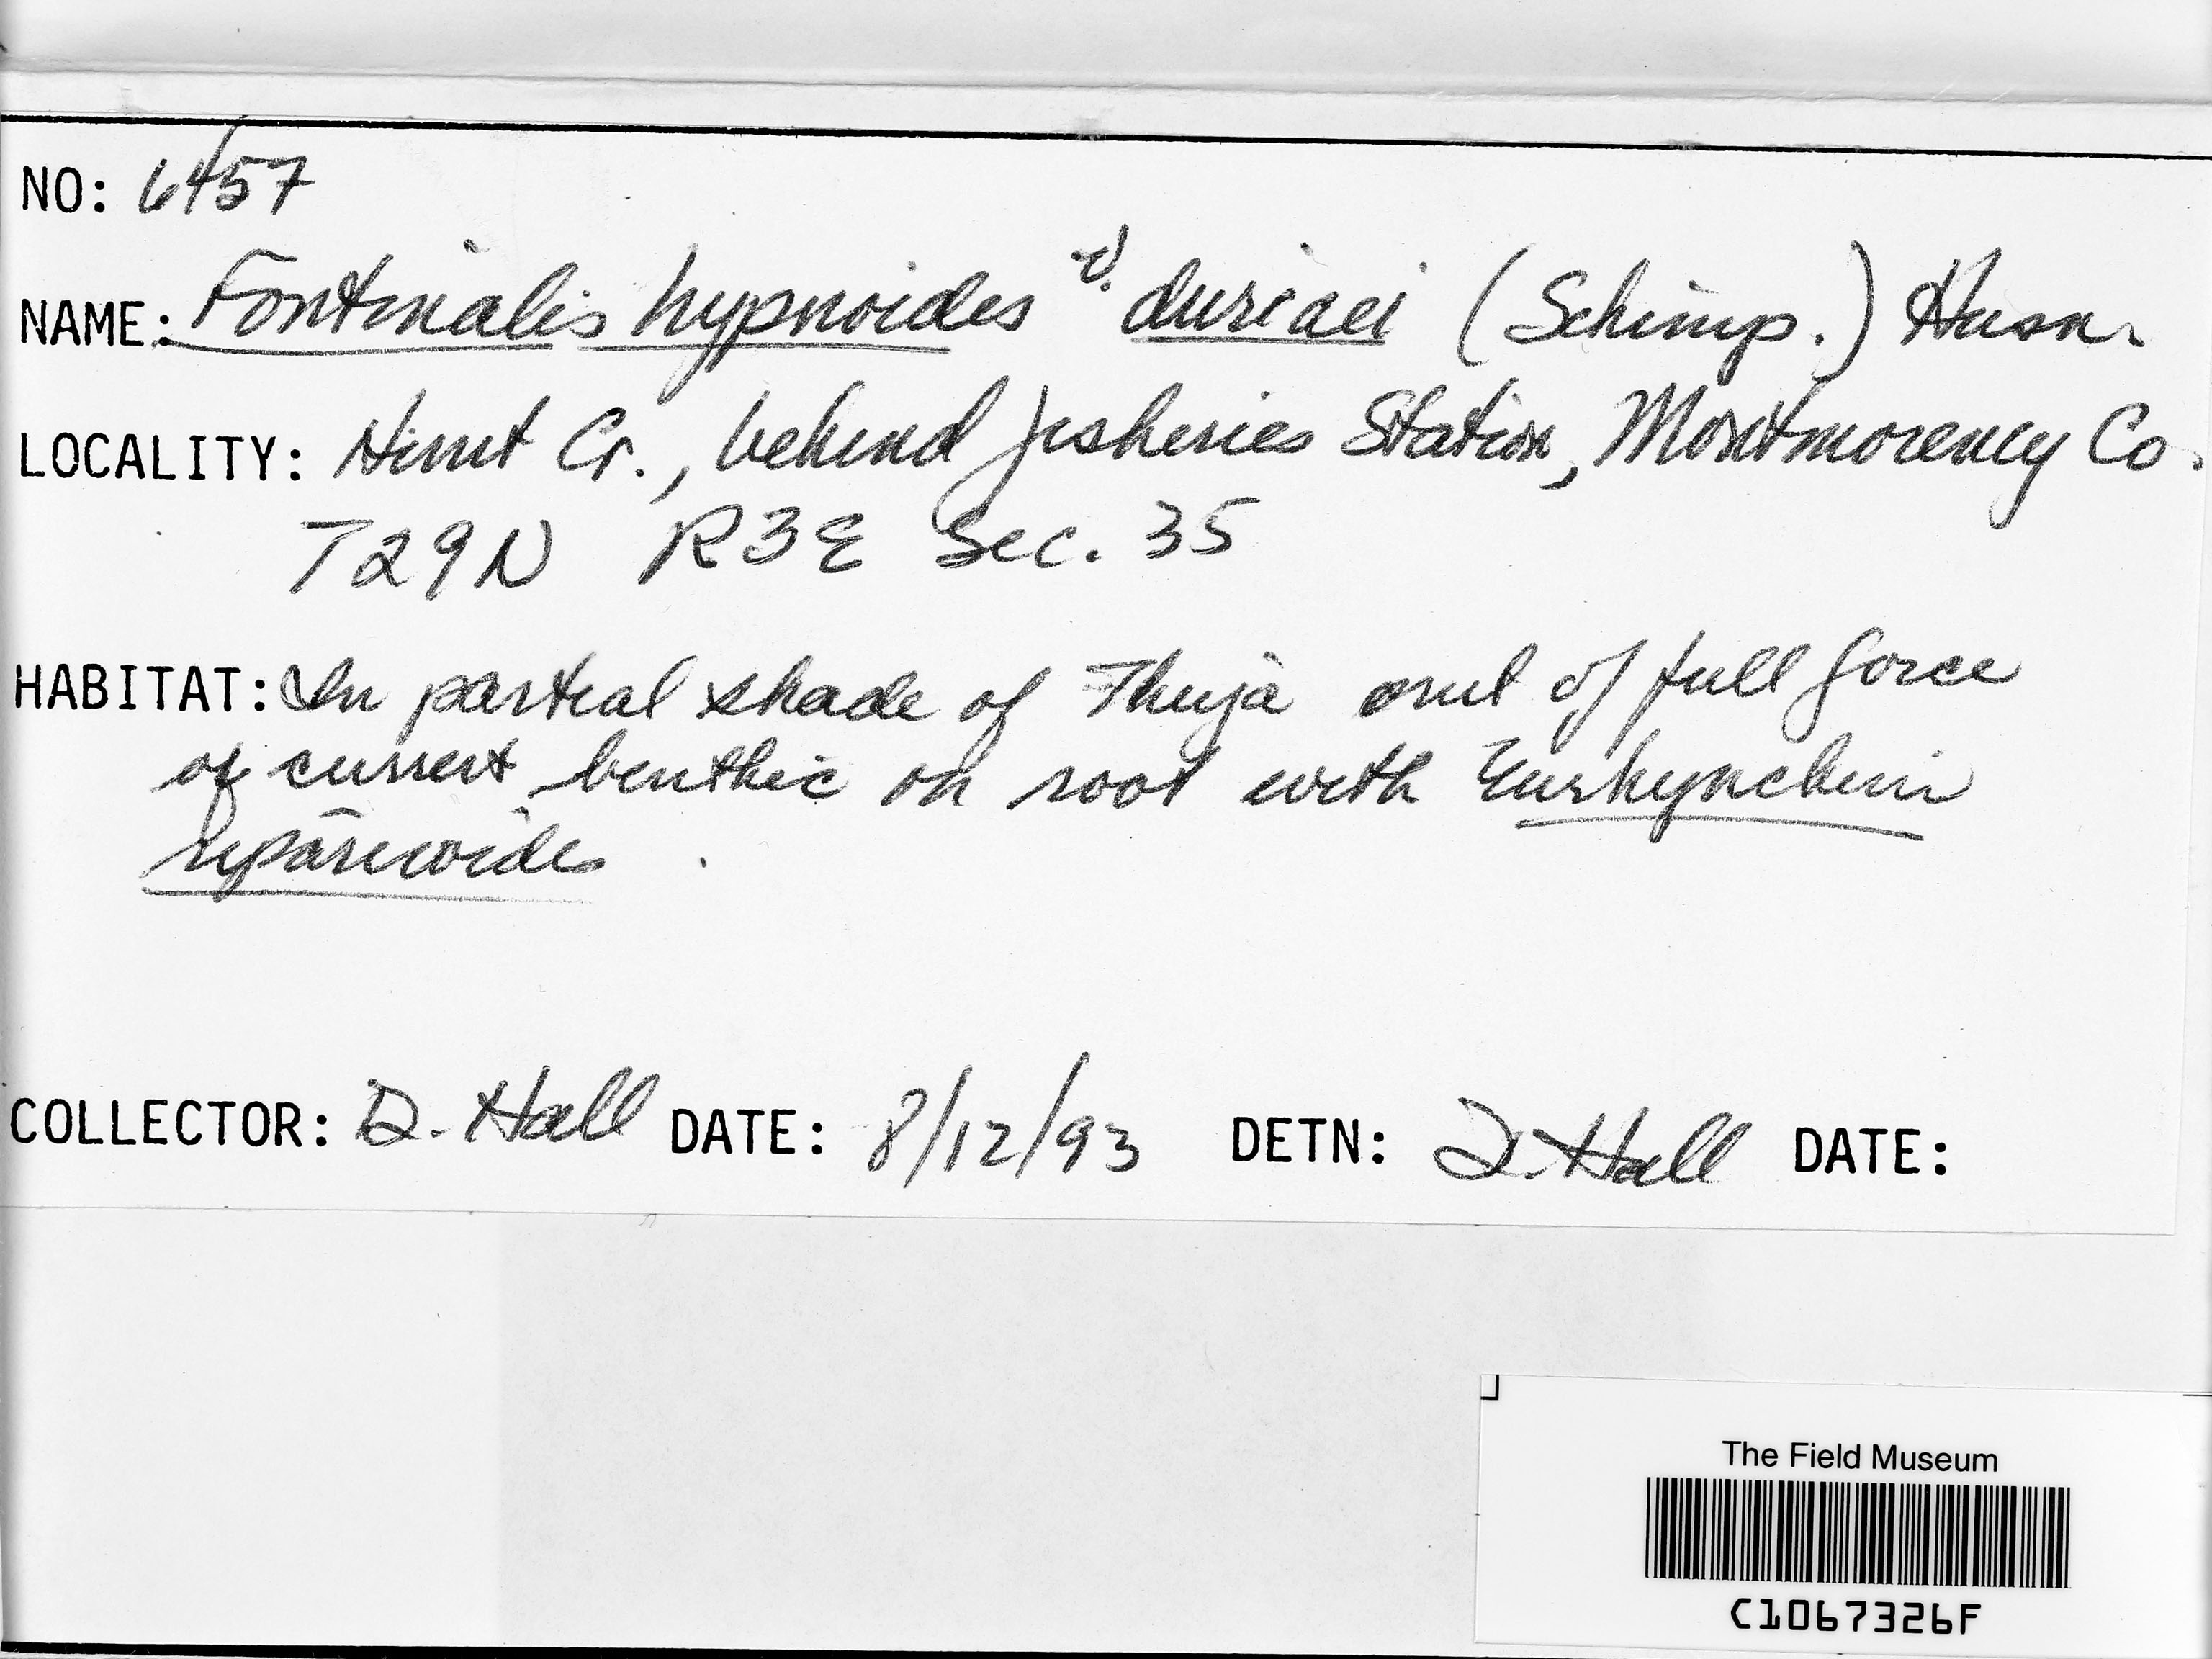 NO: 6457
NAME: Fontinalis hypnoides v. duriaei (Schimp.) Husn.
LOCALITY: Hunt Cr., behind fisheries Station, Montmorency Co.
T29N R3E Sec. 35
HABITAT: In partial shade of Thuja out of full force
of current, benthic on root with Eurhynchium
riparioides
COLLECTOR: D. Hall DATE: 8/12/93 DETN: D. Hall DATE:
The Field Museum
C1067326F